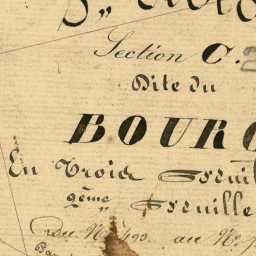 Section C.
Dite du
BOURG
En Trois Feuil
2ème Feuille
du N° 493 au N°